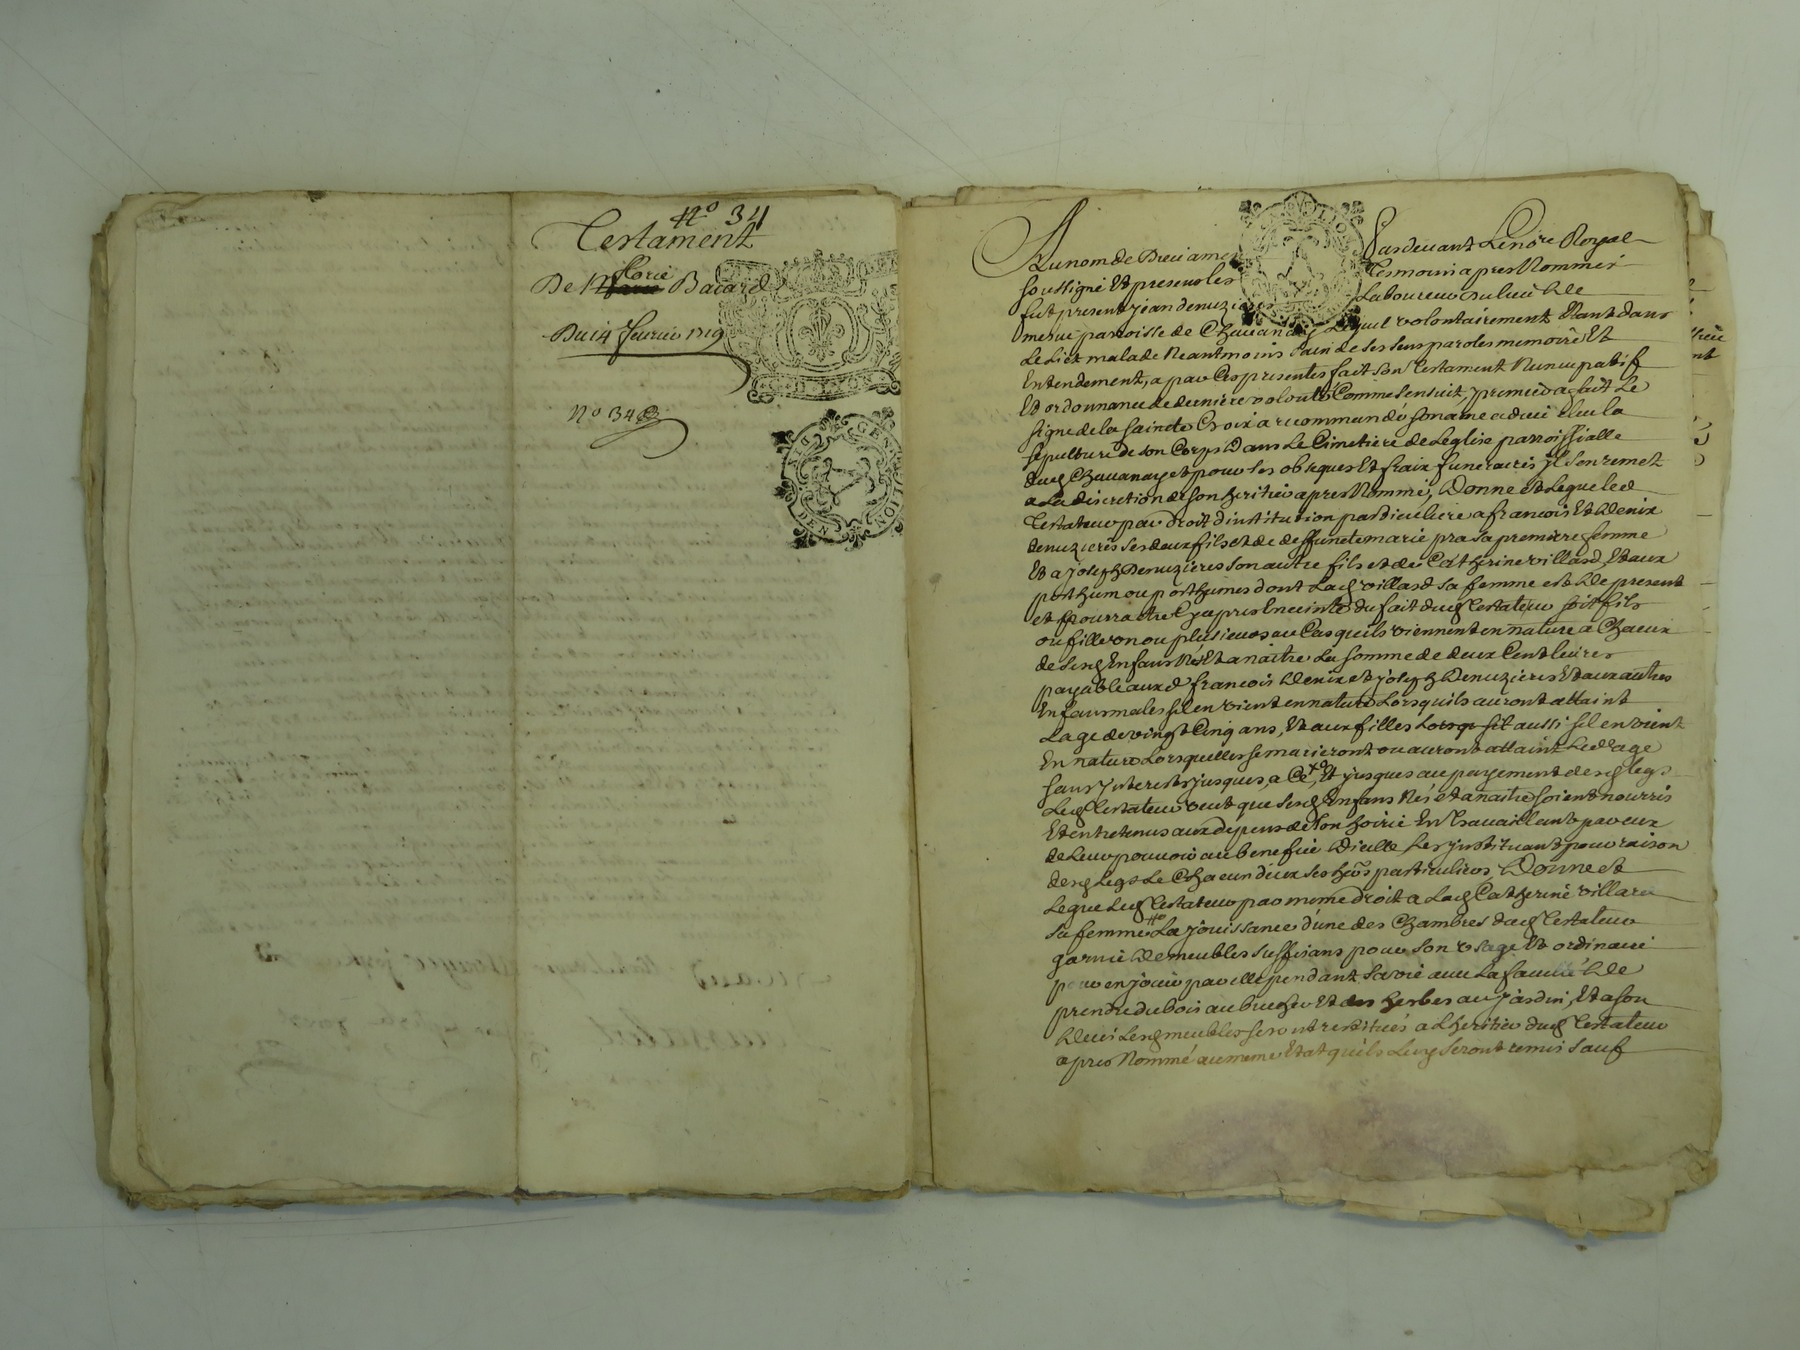 N° 34
Testament
florie
De Bacard
Du 14 fevrier 1719
N° 34
GEN
Au nom de Dieu amen Pardevant Le no.re Royal
soussigné Et presens les Tesmoins apres Nommés
fut present jean denuzieres Laboureur du lieu de
mesve parroisse de Chavanay Lequel volontairement Etant dans
Le Lict malade Neantmoins sain de ses sens paroles memoire Et
Entendement, a par Ces presentes fait son Testament Nuncupatif
Et ordonnance de derniere volonté Comme sensuit, premier a fait Le
signe de la sainte Croix a recommandé son ame a dieu Elu la
sepulture de son Corps Dans Le Cimetiere de Leglise parroissialle
dud Chavanay et pour ses obseques Et fraix funeraires jl sen remet
a La discretion de son heritier apres Nommé, Donne et Legue led
Testateur par droit dinstitution particuliere a francois Et Denix
denuzieres ses deux fils et de deffunte marie pra sa premiere femme
Et a joseph Denuzieres son autre fils et de Catherine villard, Et aux
posthum ou posthumes dont Lad villard sa femme est De present
et pourra etre Cy apres Enceinte du fait dud Testateur soit fils
ou fille un ou plusieurs au Cas quils viennent en nature a Chacun
de sesd Enfans Nés Et a naitre La somme de deux Cent livres
payable auxd francois Denix et joseph Denuzieres Et aux autres
Enfans males sil en vient en nature Lorsquils auront attaint
Lage de vingt Cinq ans, Et aux filles Lorsq sil aussi sil en vient
En nature Lorsquelles se marieront ou auront attaint Led age
sans jnterests jusques a Ce, Et jusques au payement desd legs
Led Testateur veut que sesd Enfans Nés et a naitre soient nourris
Et entretenus aux depens de son hoirie En Travaillant par eux
de Leur pouvoir au benefice Dicelle Les jnstituant pour raison
desd Legs Le Chacun deux ses hers particuliers, Donne et
Legue Led Testateur par meme droit a Lad Catherine villard
sa femme La jouissance d'une des Chambres dud Testateur
garnie De meubles suffisans pour son usage Et ordinaire
pour en jouir par elle pendant sa vie avec La faculté De
prendre du bois au bucher Et des herbes au jardin, Et a son
Deces Lesd meubles seront restitués a Lheritier dud Testateur
apres Nommé au meme Etat quils Luy seront remis sauf